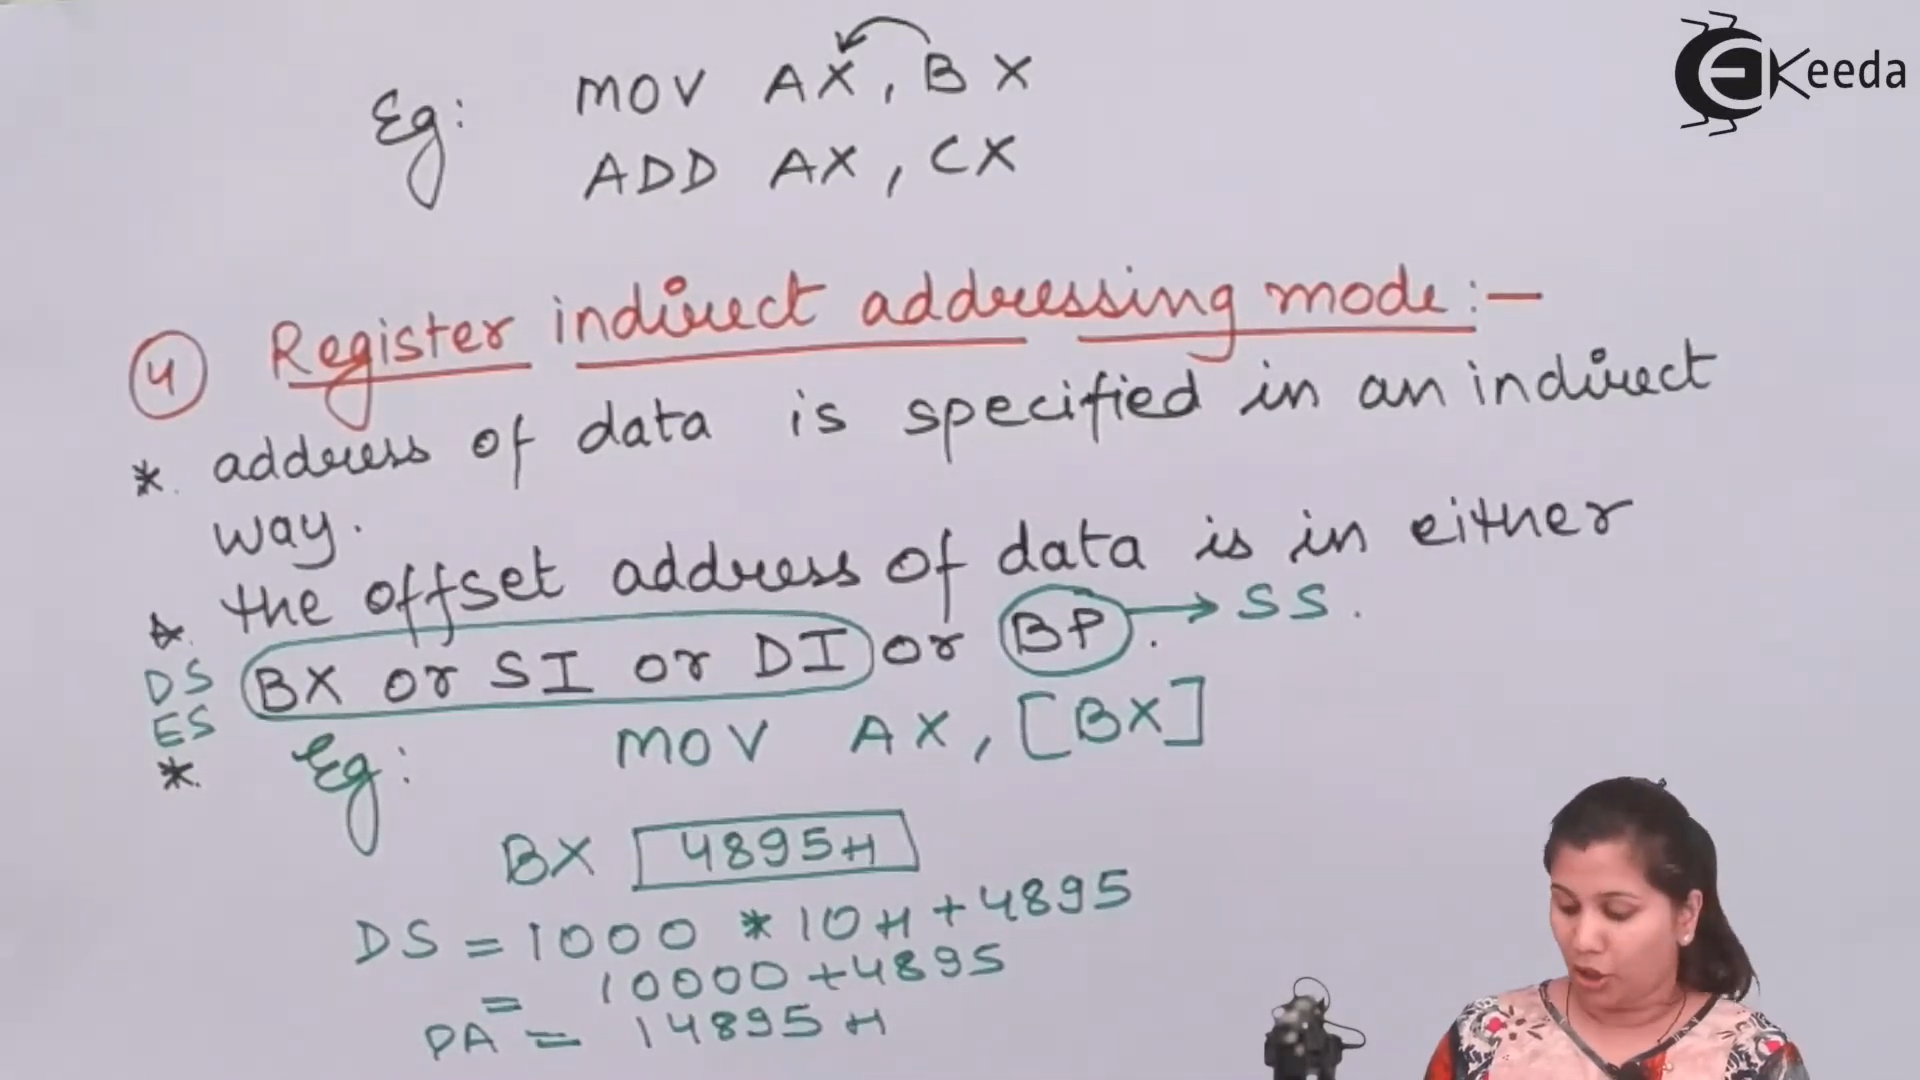 Eg: MOV AX, BX
ADD AX, CX
EKeeda
4 Register indirect addressing mode:-
* address of data is specified in an indirect
way.
* the offset address of data is in either
DS BX or SI or DI or BP. → SS.
ES
* Eg: MOV AX, [BX]
BX 4895H
DS = 1000 * 10H + 4895
= 10000 + 4895
PA = 14895H